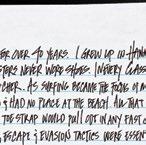 FOR OVER 40 YEARS. I GREW UP IN HAWAII
NEVER WORE SHOES. IN EVERY CLASS
AS SURFING BECAME THE FOCUS OF M
& HAD NO PLACE AT THE BEACH. ALL THAT
TOE STRAP WOULD PULL OUT IN ANY FAST
ESCAPE & EVASION TACTICS WERE ESSENT